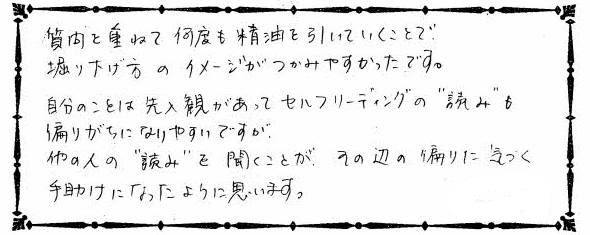 質問を重ねて 何度も精油を引いていくことで
掘り下げ方のイメージがつかみやすかったです。
自分のことは先入観があってセルフリーディングの"読み"も
偏りがちになりやすいですが、
他の人の"読み"を聞くことが、その辺の偏りに気づく
手助けになったように思います。